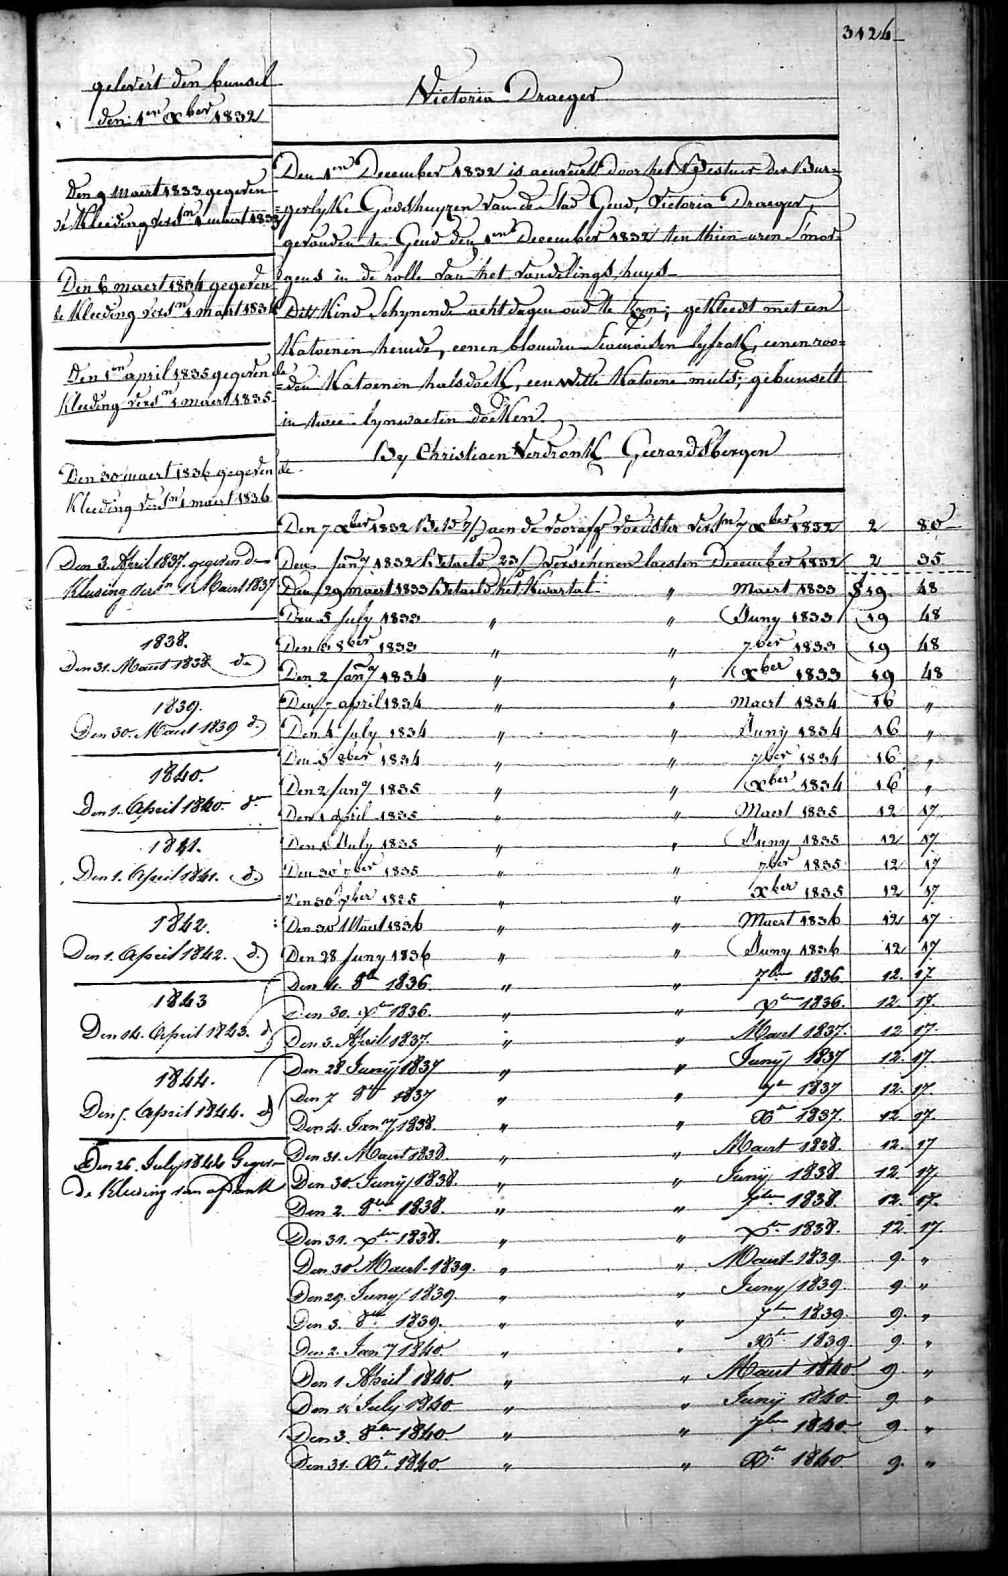 3126
gelevert den bunsel
den 1en Xber 1832
Victoria Draeger
Den 1en December 1832 is aenveird door het Bestuer der Bur=
=gerlyke Godshuyzen van de Stad Gend, Victoria Draeger
gevonden te Gend den 1en December 1832 ten thien uren S'mor=
gens in de rolle van het vondelings huys
Dit Kind Schynende acht dagen oud te zyn; gekleedt met een
Katoenen hemde, eenen blouwen lyfrok, eenen roo=
=den Katoenen halsdoek, een witte Katoene muts; gebunselt
in twee lynwaeten doeken.
By Christiaen Verdronk Geerardsbergen
Den 9 maert 1833 gegeven
de Kleeding versn 1 maert 1833
Den 6 maert 1834 gegeven
de Kleeding versn 1 maert 1834
Den 1en april 1835 gegeven de
Kleeding versn 1 maert 1835
Den 30 maert 1836 gegeven de
Kleeding versn 1 maert 1836
Den 3. April 1837. gegeven de
Kleeding versn 1 Maert 1837
1838.
Den 31. Maert 1838 do
1839.
Den 30. Maert 1839 do
1840.
Den 1. April 1840. do
1841.
Den 1. April 1841. do
1842.
Den 1. April 1842. do
1843
Den 14. April 1843. do
1844.
Den 5. April 1844. do
Den 26. July 1844 Gegev
de Kleeding van
Den 7 Xber 1832 aen de voedster versn 7 Xber 1832 2 80
Den Jany 1832 Betaeld 23/ verschenen laesten December 1832 2 35
Den 29 maert 1833 Betaeld het Kwartal " Maert 1833 19 48
Den 5 July 1833 " " Juny 1833 19 48
Den 8ber 1833 " " 7ber 1833 19 48
Den 2 Jany 1834 " " Xber 1833 19 48
Den 7 april 1834 " " Maert 1834 16 "
Den 4 July 1834 " " Juny 1834 16 "
Den 3 8ber 1834 " " 7ber 1834 16 "
Den 2 Jany 1835 " " Xber 1834 16 "
Den 1 April 1835 " " Maert 1835 12 17
Den 1 July 1835 " " Juny 1835 12 17
Den 30 7ber 1835 " " 7ber 1835 12 17
Den 30 Xber 1835 " " Xber 1835 12 17.
Den 30 Maert 1836 " " Maert 1836 12 17
Den 28 Juny 1836 " " Juny 1836 12 17
Den 4. 8ber 1836. " " 7ber 1836 12. 17
Den 30. Xber 1836. " " Xber 1836. 12. 17.
Den 3. April 1837. " " Maert 1837. 12 17.
Den 28 Junij 1837 " " Junij 1837 12. 17.
Den 7 8br 1837 " " 7br 1837 12. 17.
Den 4. Jany 1838. " " Xbr 1837. 12 17.
Den 31. Maert 1838. " " Maert 1838. 12. 17
Den 30. Junij 1838. " " Junij 1838 12. 17
Den 2. 8ber 1838. " " 7ber 1838. 12. 17.
Den 31. Xber 1838. " " Xbr 1838. 12. 17.
Den 30 Maert 1839. " " Maert 1839. 9. "
Den 29. Juny 1839 " " Juny 1839. 9. "
Den 3. 8br 1839. " " 7ber 1839. 9. "
Den 2. Jany 1840. " " Xbr 1839. 9. "
Den 1 April 1840. " " Maert 1840 9. "
Den 1 July 1840. " " Junij 1840. 9. "
Den 3. 8br 1840 " " 7ber 1840. 9. "
Den 31. Xbr 1840. " " Xbr 1840. 9. "